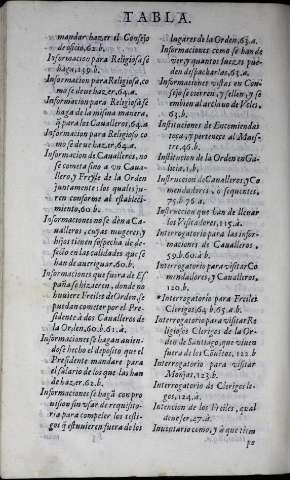 TABLA.
mandar hazer el Consejo
de oficio, 62.b.
Informacion para Religiosa se
haga, 139.b.
Informacion para Religiosa, co
mo se deue hazer, 64.a.
Informacion para Religiosa se
haga de la misma manera,
q̃ para los Caualleros, 64.a.
Informacion para Religioso co
mo se deue hazer, 64.a.
Informacion de Caualleros, no
se cometa sino a vn Caua-
llero, y Freyle de la Orden
juntamente: los quales ju-
ren conforme al estableci-
miento, 60.b.
Informaciones no se dẽ a Ca-
ualleros, cuyas mugeres, y
hijos tienen sospecha de de-
fecto en las calidades que se
han de aueriguar, 60.b.
Informaciones que fuera de Es
paña se hizieren, donde no
huuiere Freiles de Orden, se
puedan cometer por el Pre-
sidente à dos Caualleros de
la Orden, 60.b. 61.à.
Informaciones se hagan auien-
dose hecho el deposito que el
Presidente mandare para
el salario de los que las han
de hazer, 62.b.
Informaciones se hagã con pro
uision sin vsar de requisito-
ria para compeler los testi-
gos q̃ estuuieren fuera de los
lugares de la Orden, 63.a.
Informaciones como se han de
ver, y quantos juezes pue-
den despacharlas, 63.a.
Informaciones vistas en Con-
sejo se cierren, y sellen, y se
embien al archiuo de Vcles,
63.b.
Instituciones de Encomiendas
toca, y pertenece al Maes-
tre, 46.b.
Institucion de la Orden en Ga-
licia, 1.b.
Instruccion de Caualleros, y Co
mendadores, o sequentes,
75.b. 76.a.
Instruccion que han de lleuar
los Visitadores, 115.a.
Interrogatorio para las infor-
maciones de Caualleros.
59.b. 60.à b.
Interrogatorio para visitar Co
mendadores, y Caualleros,
120.b.
Interrogatorio para Freiles
Clerigos, 64.b. 65.a.b.
Interrogatorio para visitar Re
ligiosos Clerigos de la Or-
den de Santiago, que viuen
fuera de los Cõuẽtos, 122.b
Interrogatorio para visitar
Monjas, 123.b.
Interrogatorio de Clerigos le-
gos, 124.à.
Intencion de los Freiles, qual
deue ser, 27.à.
Inuentario como, y à que tiem
po